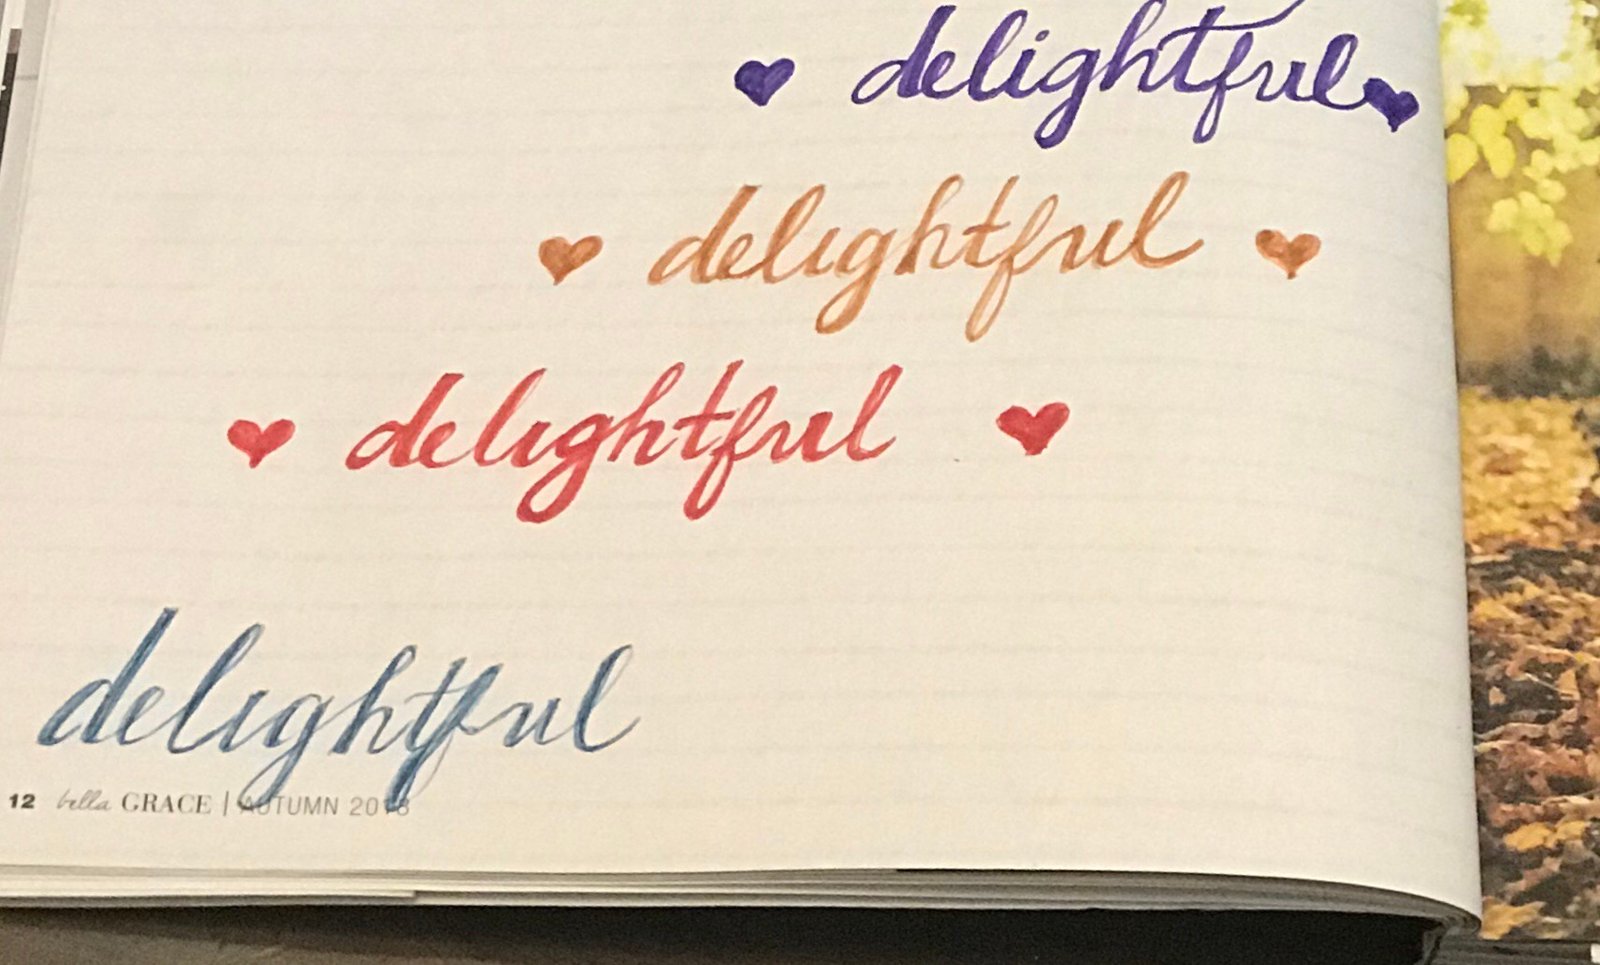 delightful
delightful
delightful
delightful
12 bella GRACE | AUTUMN 2018